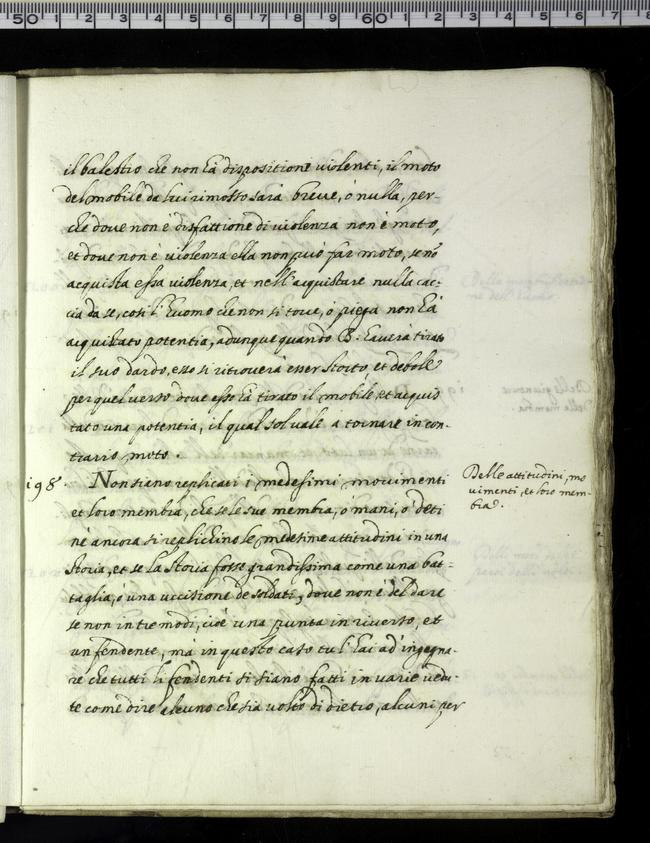 il balestro che non hà dispositione violenti, il moto
del mobile da lui rimosso sarà breve, ò nulla, per-
che dove non è disfattione di violenza non è moto,
et dove non è violenza ella non può far moto, se nō
acquista essa violenza, et nell'acquistare nulla cac-
cia da se, così l'huomo che non si torce, ò piega non hà
acquistato potentia, adunque quando B. haverà tirato
il suo dardo, esso si ritroverà esser storto, et debole
per quel verso dove esso hà tirato il mobile, et acquis
tato una potentia, il qual sol vale à tornare in con-
trario moto.
198. Non siano replicati i medesimi movimenti
Delle attitudini, mo
vimenti, et loro mem-
bra.
et loro membra, che se le sue membra, ò mani, ò deti
nè ancora si replichino le medesime attitudini in una
storia, et se la storia fosse grandissima come una bat-
taglia, ò una uccisione de soldati, dove non è del dare
se non in tre modi, cioè una punta in riverso, et
un fendente, mà in questo caso tu l'hai ad'ingegna-
re che tutti li fendenti si siano fatti in varie vedu-
te come dire alcuno che sia volto di dietro, alcuni per